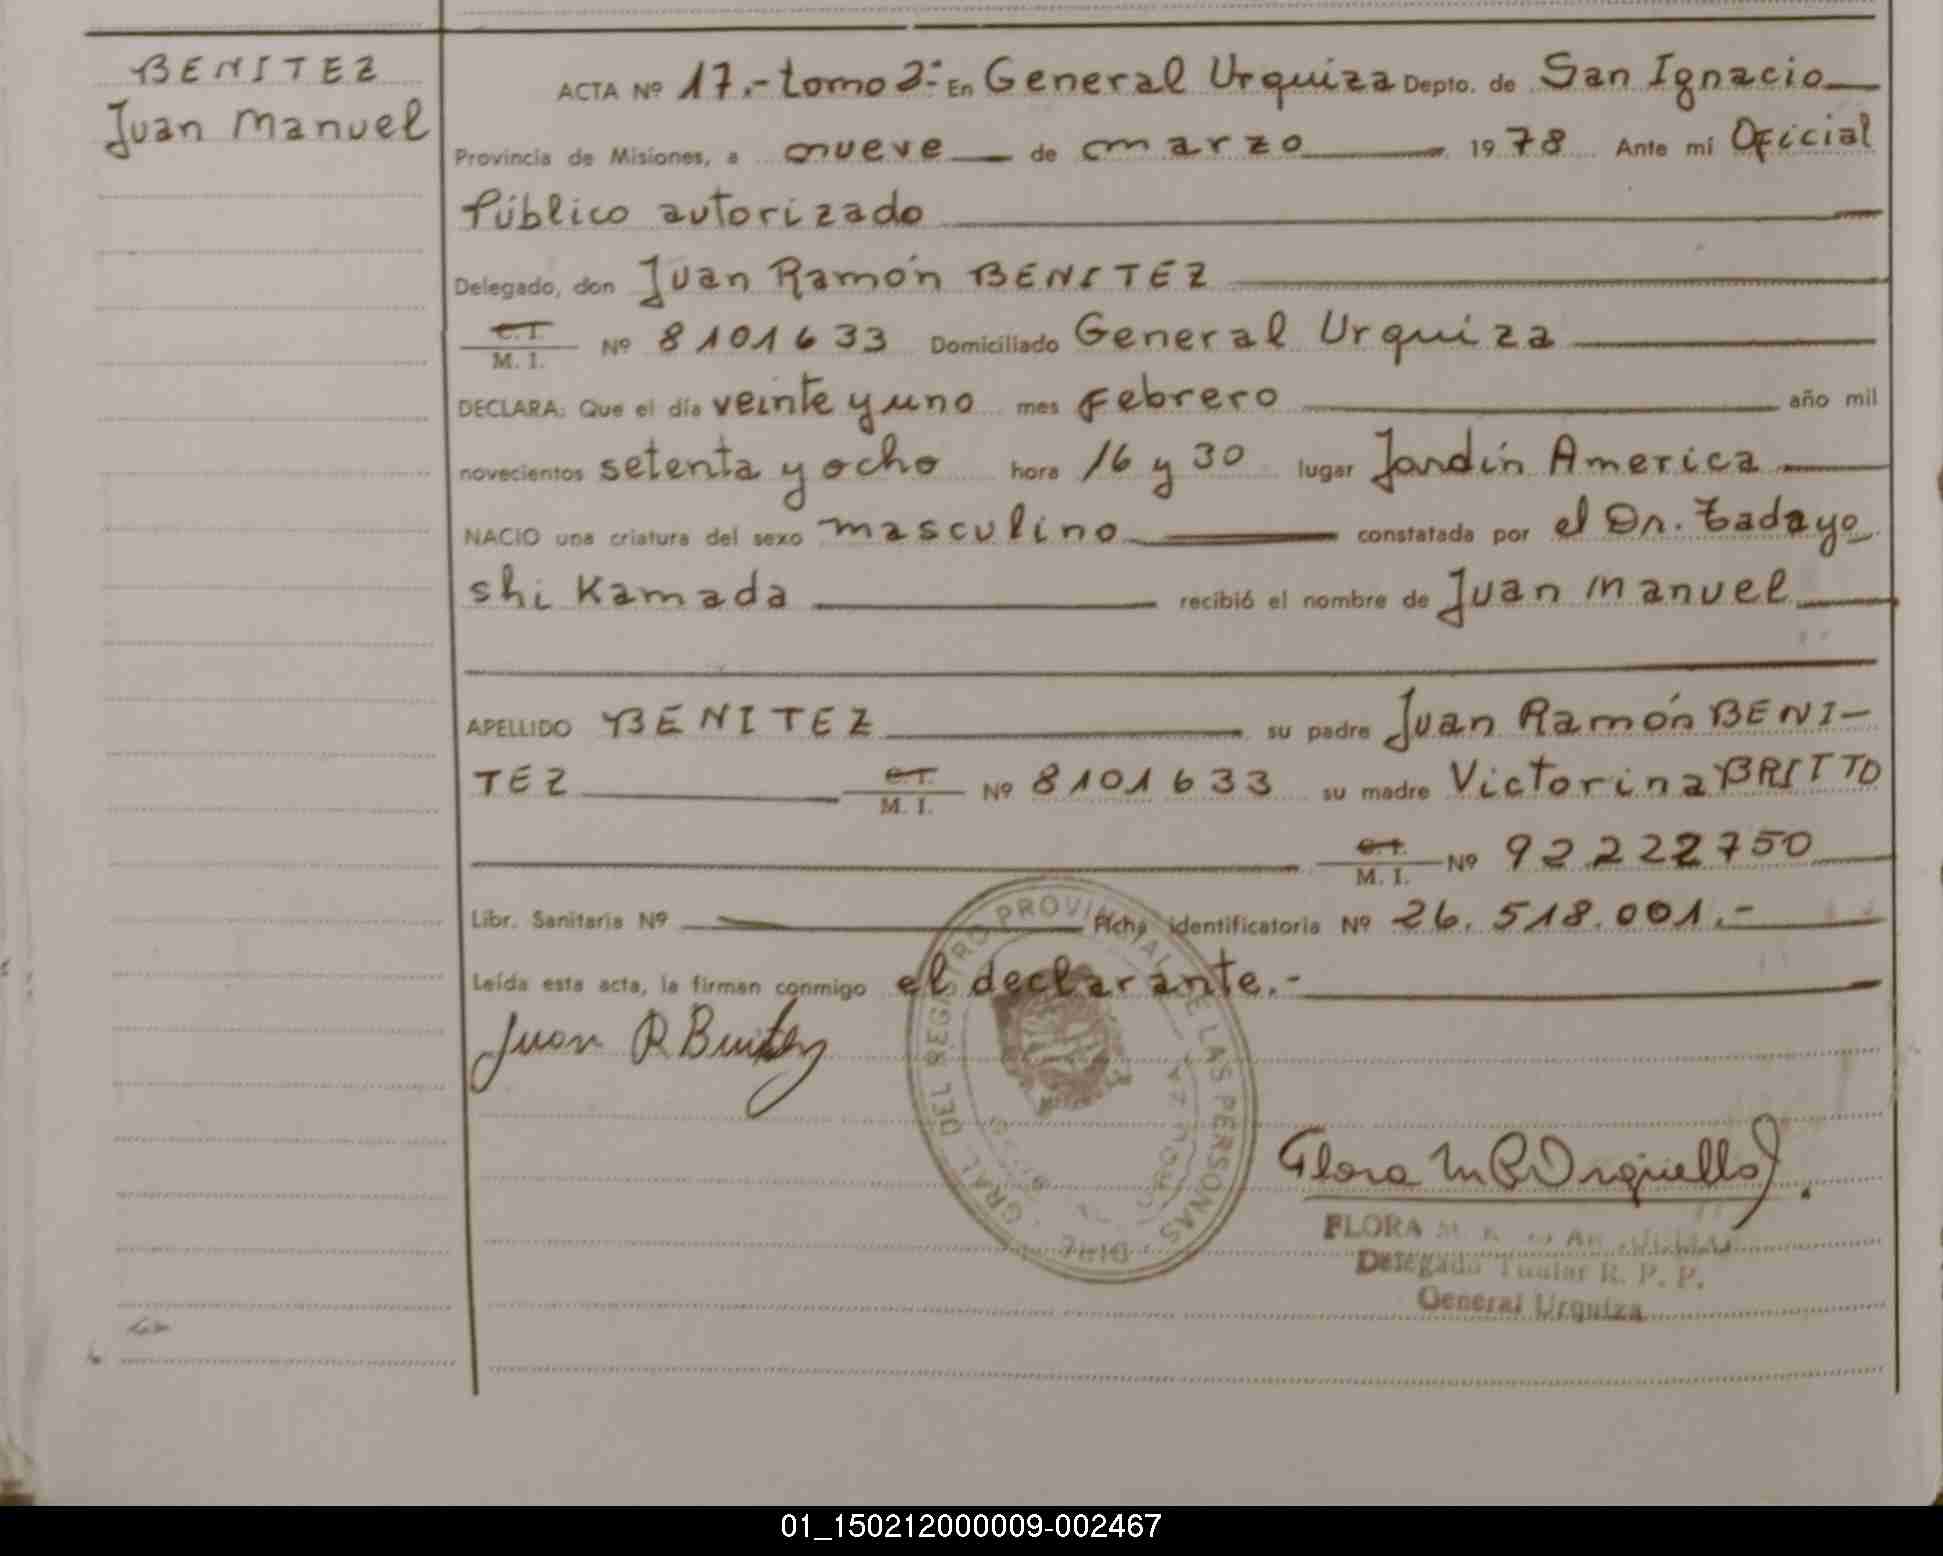 BENITEZ
Juan Manuel
ACTA Nº 17.- tomo 2º- En General Urquiza Depto. de San Ignacio
Provincia de Misiones, a nueve de marzo 1978 Ante mí Oficial
Público autorizado
Delegado, don Juan Ramón BENITEZ
C.I.
M. I. Nº 8101633 Domiciliado General Urquiza
DECLARA: Que el día veinte y uno mes Febrero año mil
novecientos setenta y ocho hora 16 y 30 lugar Jardín America
NACIO una criatura del sexo masculino constatada por el Dr. Tadayo
shi Kamada recibió el nombre de Juan Manuel
APELLIDO BENITEZ su padre Juan Ramón BENI-
TEZ C.I. M. I. Nº 8101633 su madre Victorina BRITTO
C.I. M. I. Nº 92222750
Libr. Sanitaria Nº Ficha identificatoria Nº 26.518.001.-
Leída esta acta, la firman conmigo el declarante.-
Juan R Benitez
DEL REGISTRO PROVINCIAL DE LAS PERSONAS
GRAL
Flora M
FLORA M.
Delegado Titular R. P. P.
General Urquiza
01_150212000009-002467